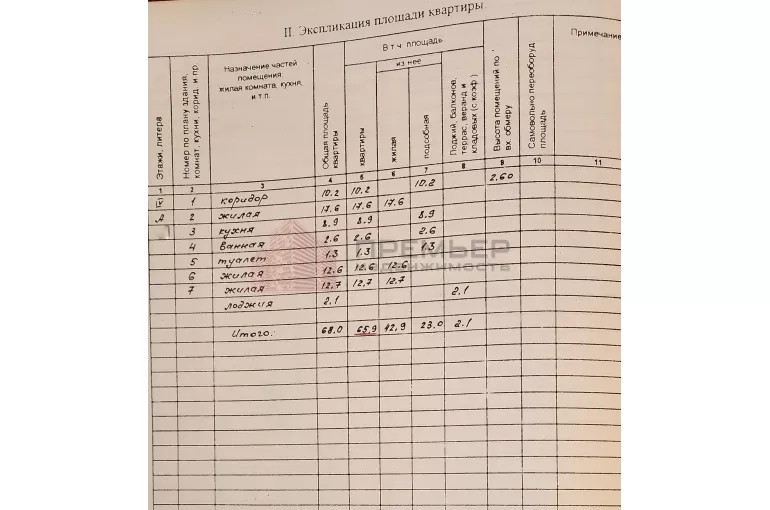 II. Экспликация площади квартиры.
Этажи, литера
Номер по плану здания, комнат, кухни, корид. и пр.
Назначение частей
помещения:
жилая комната, кухня,
и т.п.
Общая площадь
квартиры
В т.ч. площадь
квартиры
из нее
жилая
подсобная
Лоджий, балконов,
террас, веранд и
кладовых (с коэф.)
Высота помещений по
вн. обмеру
Самовольно переоборуд
площадь
Примечание
1 2 3 4 5 6 7 8 9 10 11
IV 1 коридор 10.2 10.2 10.2 2.60
А 2 жилая 17.6 17.6 17.6
3 кухня 8.9 8.9 8.9
4 ванная 2.6 2.6 2.6
5 туалет 1.3 1.3 1.3
6 жилая 12.6 12.6 12.6
7 жилая 12.7 12.7 12.7
лоджия 2.1 2.1
Итого: 68.0 65.9 42.9 23.0 2.1
ПРЕМЬЕР
НЕДВИЖИМОСТЬ